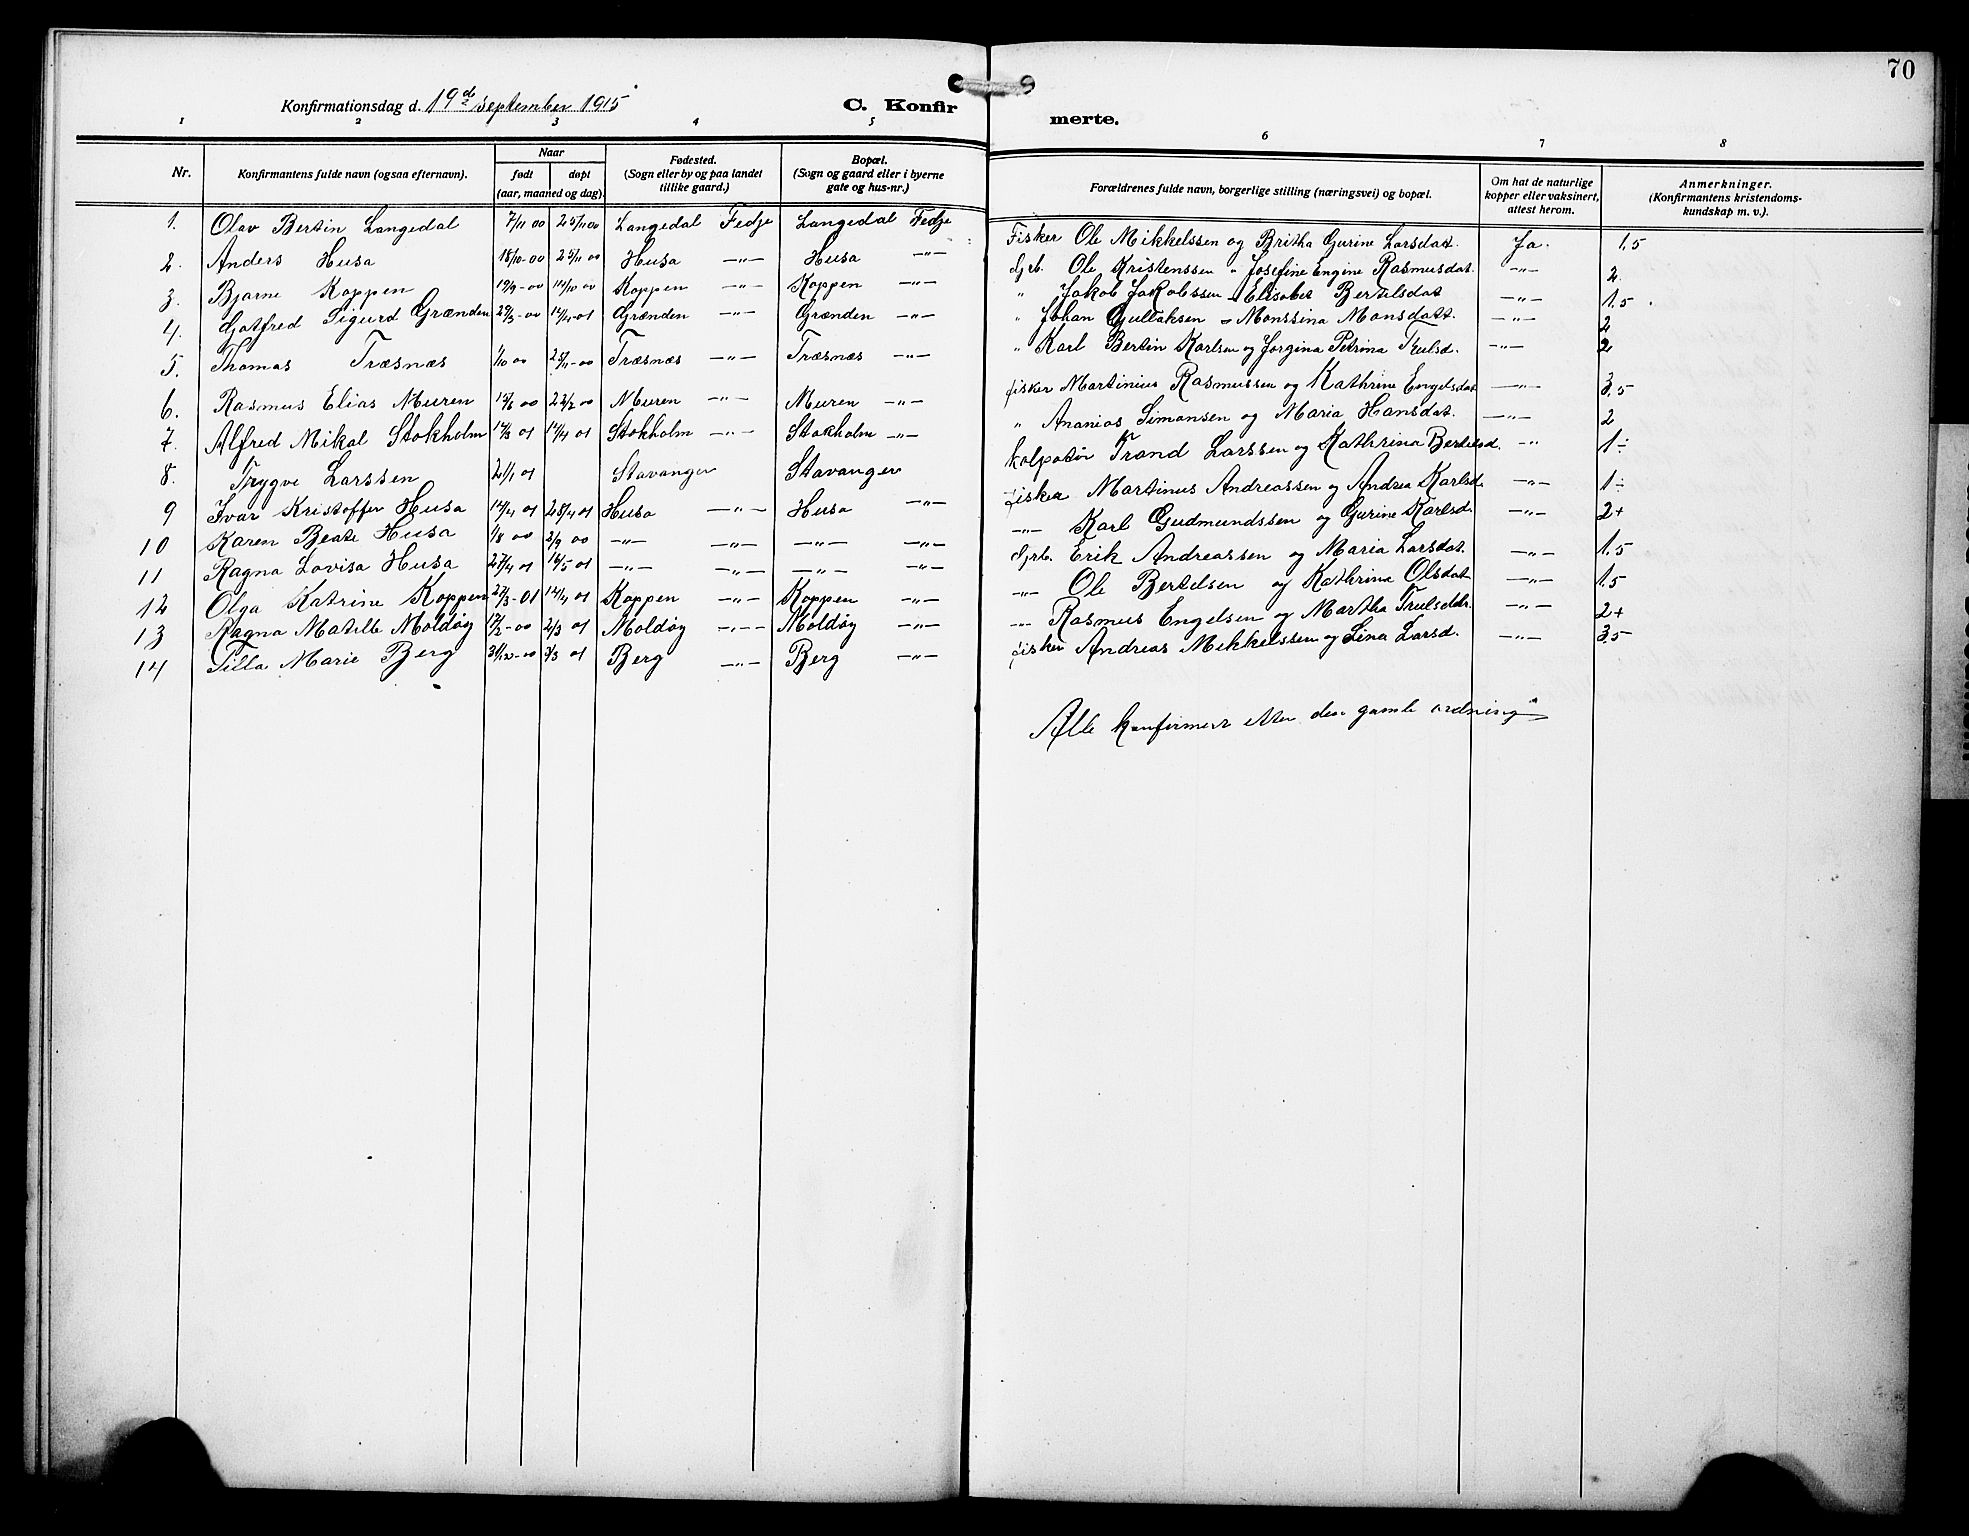 70
Konfirmationsdag d. 19de september 1915
C. Konfirmerte.
1 2 3 4 5 6 7 8
Nr.
Konfirmantens fulde navn (ogsaa efternavn).
Naar
født døpt
(aar, maaned og dag).
Fødested.
(Sogn eller by og paa landet
tillike gaard.)
Bopæl.
(Sogn og gaard eller i byerne
gate og hus-nr.)
Forældrenes fulde navn, borgerlige stilling (næringsvei) og bopæl.
Om hat de naturlige
kopper eller vaksinert,
attest herom.
Anmerkninger.
(Konfirmantens kristendoms-
kundskap m. v.).
1. Olav Bertin Langedal 7/11 00 25/11 00 Langedal Fedje Langedal Fedje Fisker Ole Mikkelssen og Britha Gurine Larsdat. Ja. 1,5
2. Anders Husa 18/10-00 25/11 00 Husa —"— Husa —"— Grb. Ole Kristenssen " Josefine Engine Rasmusdat. —"— 2
3. Bjarne Koppen 19/9-00 14/10 00 Koppen —"— Koppen —"— " Jakob Jakobssen - Elisabet Bertilsdat —"— 1,5
4. Gotfred Sigurd Grænden 14/4-01 Grænden —"— Grænden —"— " Johan Gullaksen - Monssina Monsdatt. —"— 2
5. Thomas Træsnæs 1/10 00 25/11-00 Træsnæs —"— Træsnæs —"— " Karl Bertin Karlsen og Jorgina Petrina Trulsd. —"— 2
6. Rasmus Elias Muren Muren —"— Muren —"— fisker Martinius Rasmussen og Kathrine Engelsdat —"— 3,5
7. Alfred Mikal Stokholm 14/3 01 14/4 01 Stokholm —"— Stokholm —"— " Ananias Simonsen og Maria Hansdat. —"— 2
8. Trygve Larssen 2/1 01 Stavanger Stavanger kolpotør Trond Larssen og Kathrina Bertilsd. —"— 1÷
9 Ivar Kristoffer Husa 14/4 01 28/4 01 Husa —"— Husa —"— fisker Martinus Andreassen og Andrea Karlsd. —"— 1÷
10 Karen Beate Husa 1/8 00 2/9 00 —"— —"— —"— —"— —"— Karl Gudmundssen og Gurine Karlsd. —"— 2+
11 Ragna Lovisa Husa 27/4 01 16/5 01 —"— —"— —"— —"— Gjrb. Erik Andreassen og Maria Larsdat. —"— 1,5
12 Olga Katrine Koppen 27/3-01 14/4 01 Koppen —"— Koppen —"— —"— Ole Bertelsen og Kathrina Olsdat —"— 1,5
13 Ragna Matilde Moldøy 17/2-00 2/3 01 Moldøy —"— Moldøy —"— —"— Rasmus Engelsen og Martha Trulsdtr. —"— 2+
14 Tilla Marie Berg 31/12-00 3/3 01 Berg —"— Berg —"— fisker Andreas Mikkelssen og Lina Larsd. —"— 3,5
Alle konfirmert etter den gamle ordning